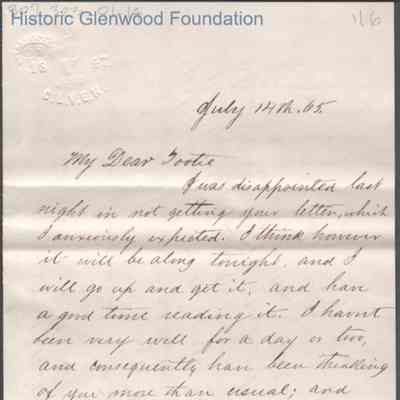 Historic Glenwood Foundation
116
July 14th. 65.
My Dear Tootie
I was disappointed last
night in not getting your letter, which
I anxiously expected. I think however
it will be along tonight, and I
will go up and get it, and have
a good time reading it. I havnt
been very well for a day or two,
and consequently have been thinking
of you more than usual; and